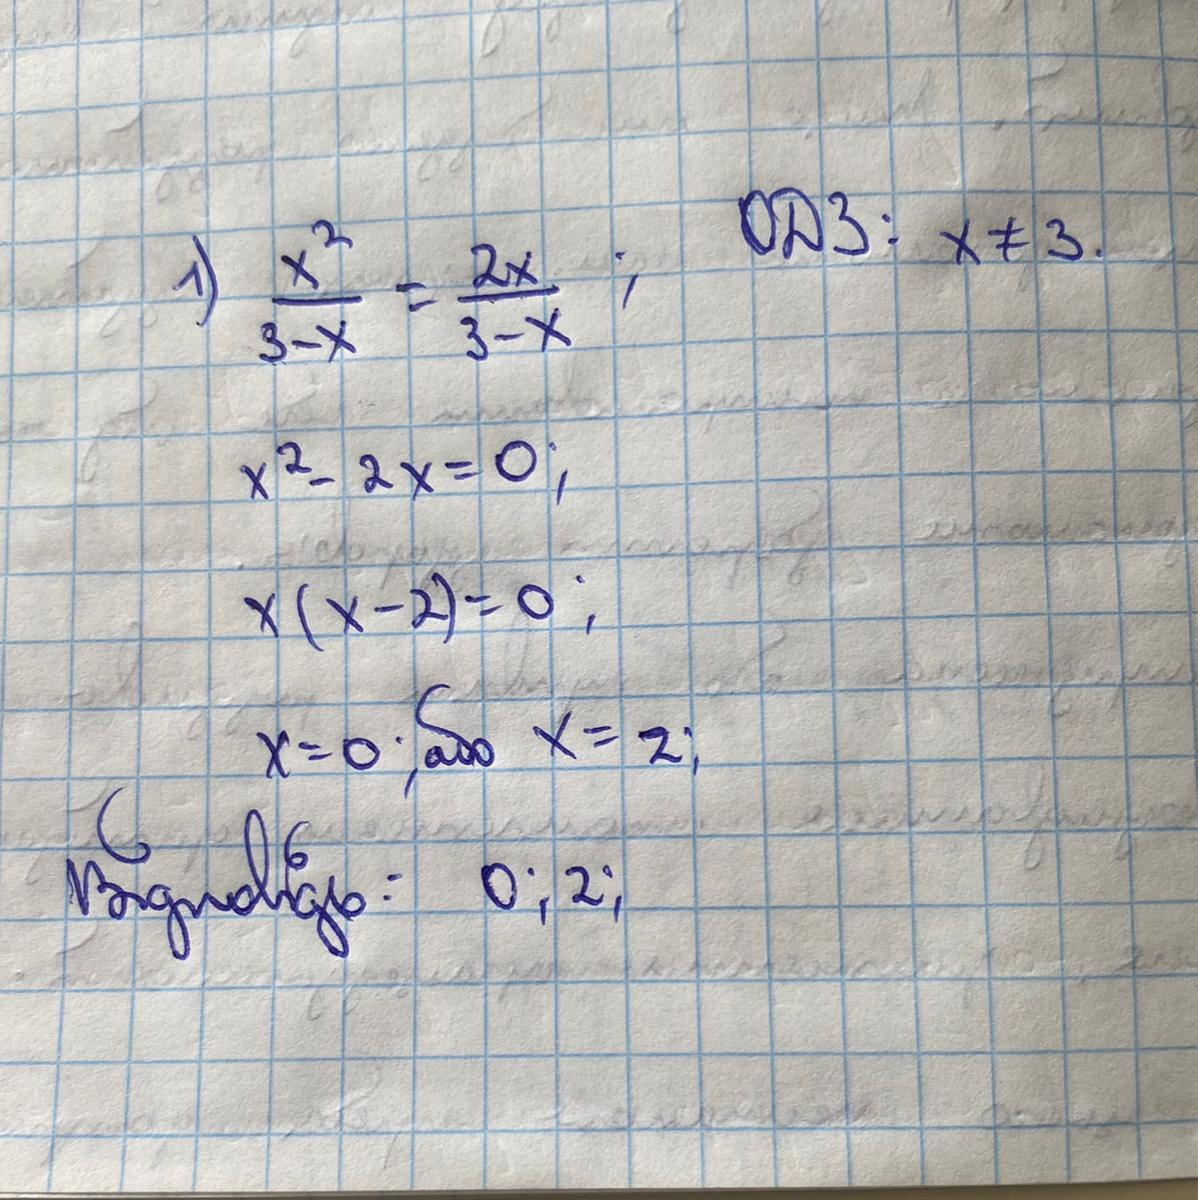 1) x²/(3-x) = 2x/(3-x) ; ОДЗ: x ≠ 3.
x² - 2x = 0;
x(x-2) = 0;
x = 0; або x = 2;
Відповідь: 0; 2;